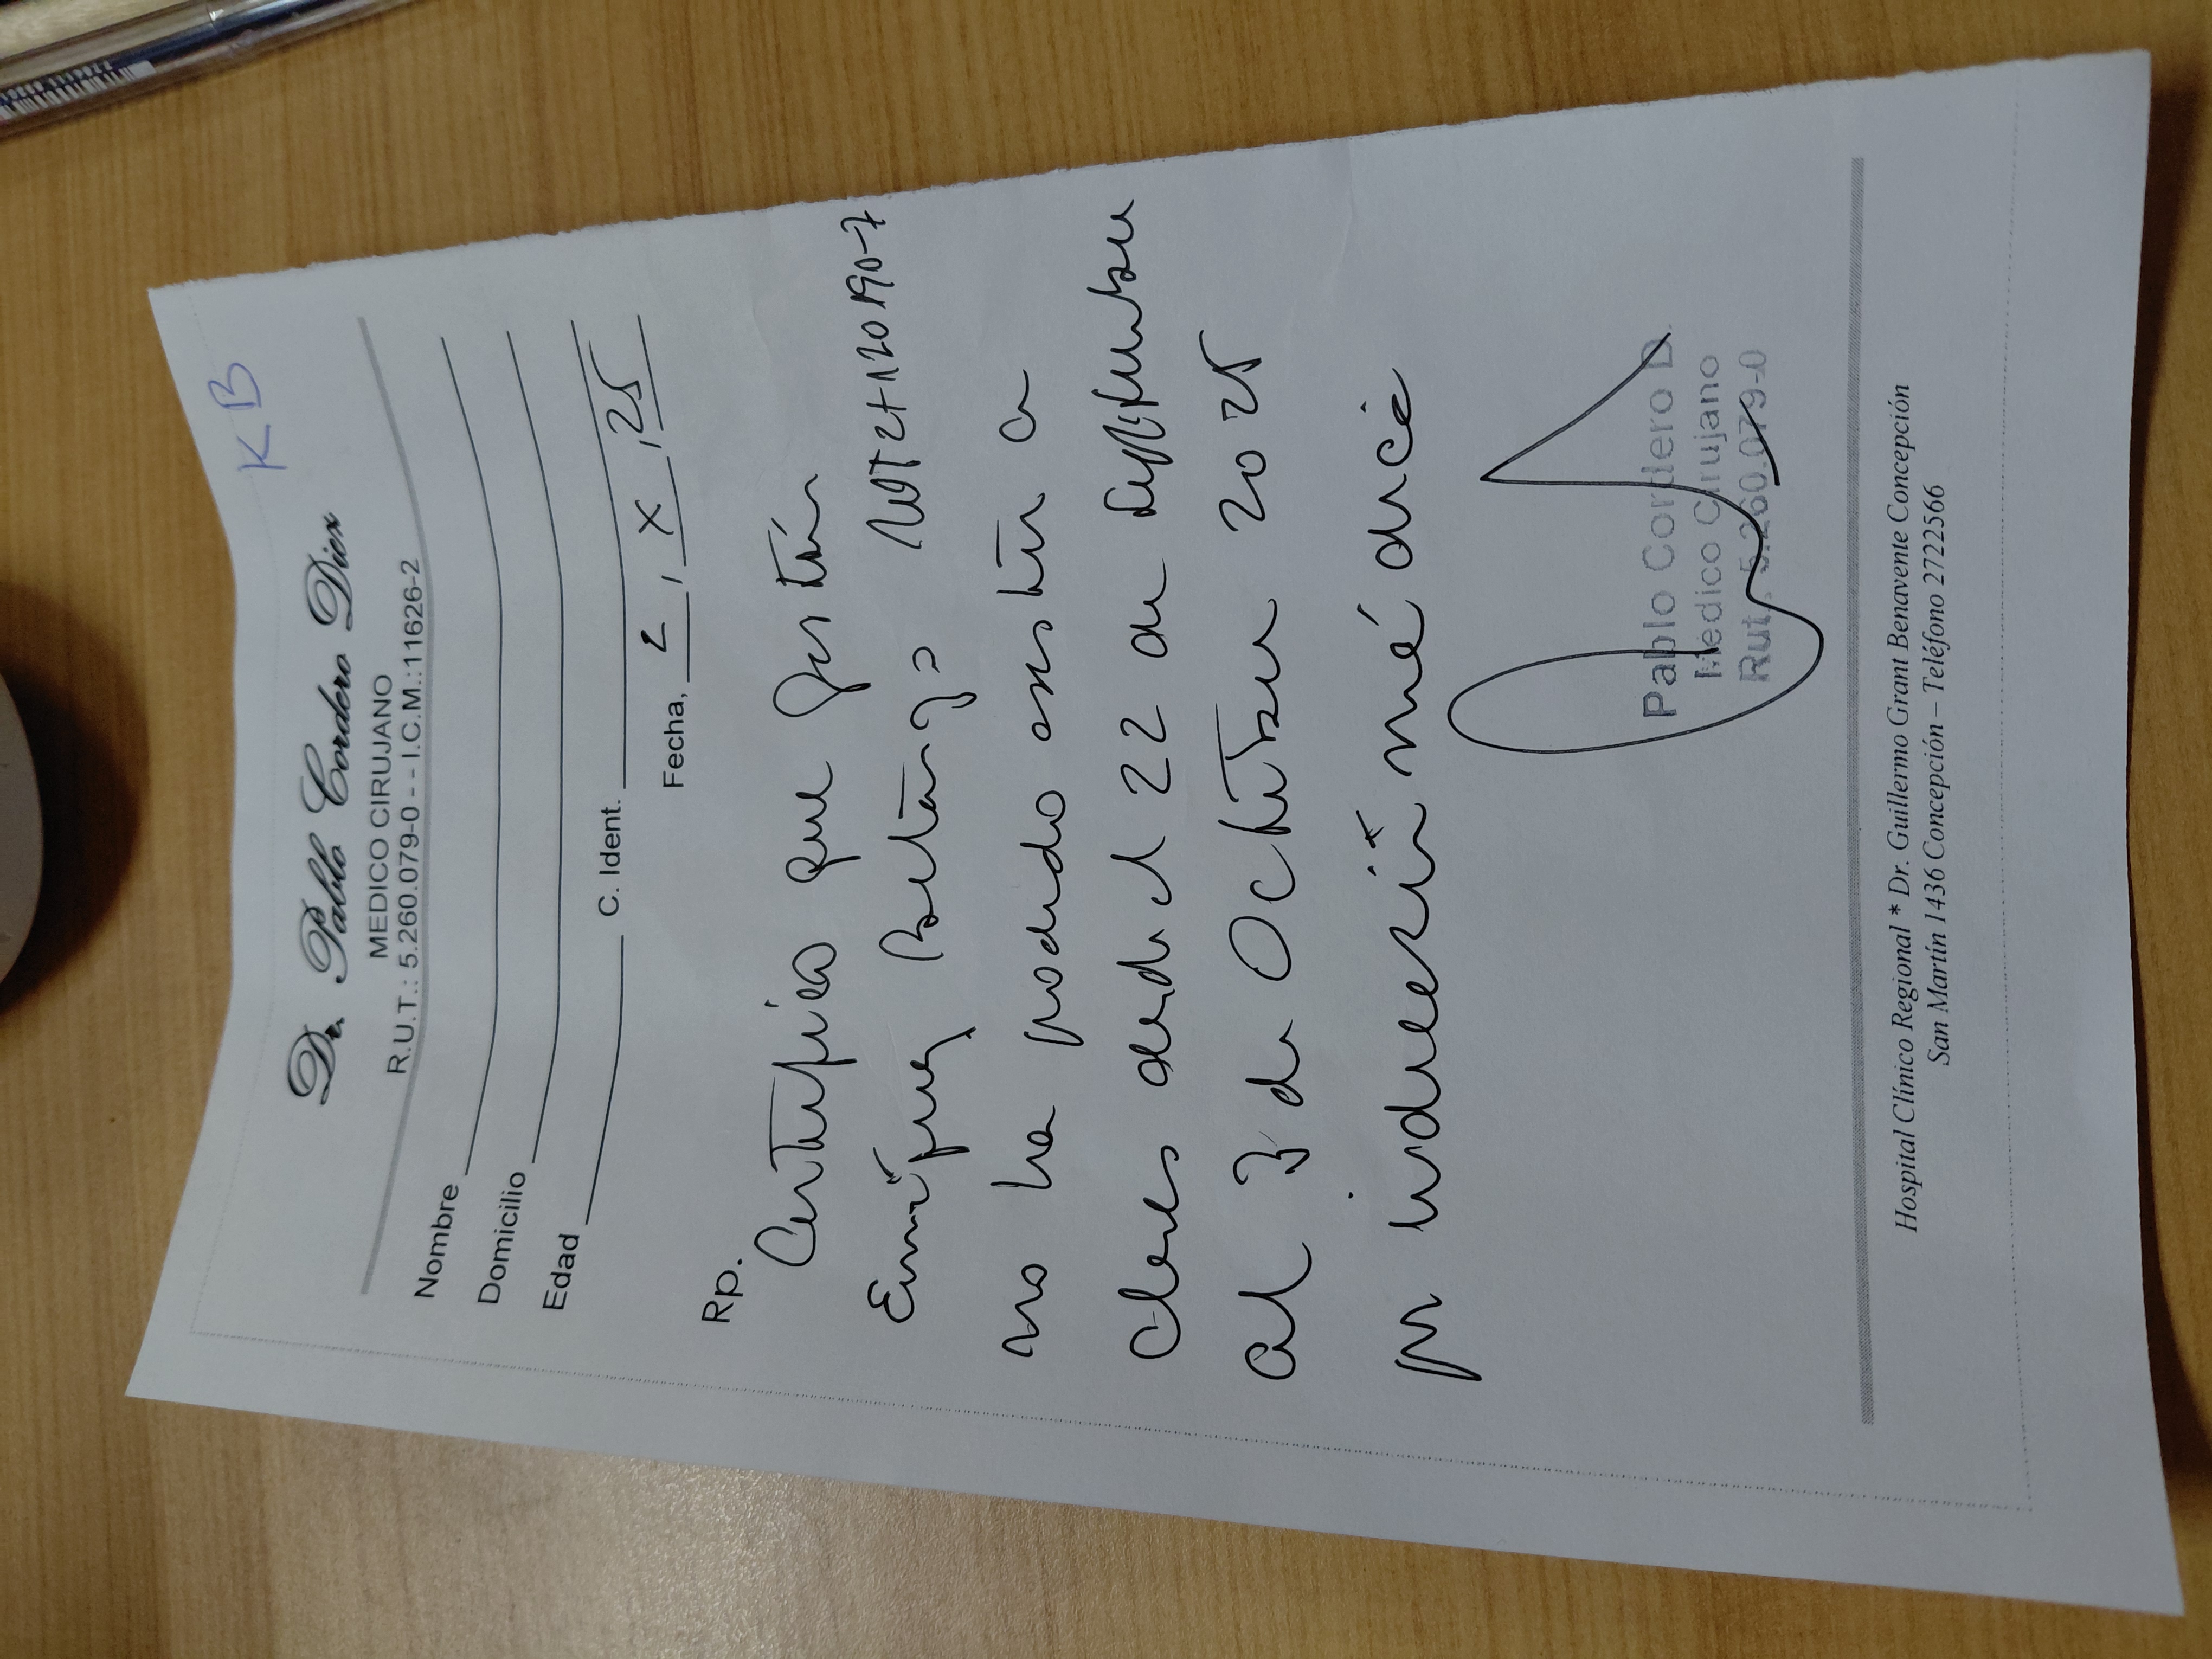 KB
Dr. Pablo Cordero Diez
MEDICO CIRUJANO
R.U.T.: 5.260.079-0 -- I.C.M.:11626-2
Nombre
Domicilio
Edad C. Ident.
Fecha, 2, X, 25
Rp.
Certifico que
no ha podido asistir a
clases desde el 22 de Septiembre
al 3 de Octubre 2025
por indicación
Pablo Cordero D.
Médico Cirujano
Rut. 5.260.079-0
Hospital Clínico Regional * Dr. Guillermo Grant Benavente Concepción
San Martín 1436 Concepción – Teléfono 2722566